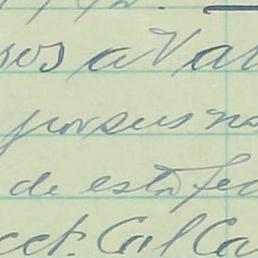 sos a Var
por sus no
de esta fec
cet. Cal Ca